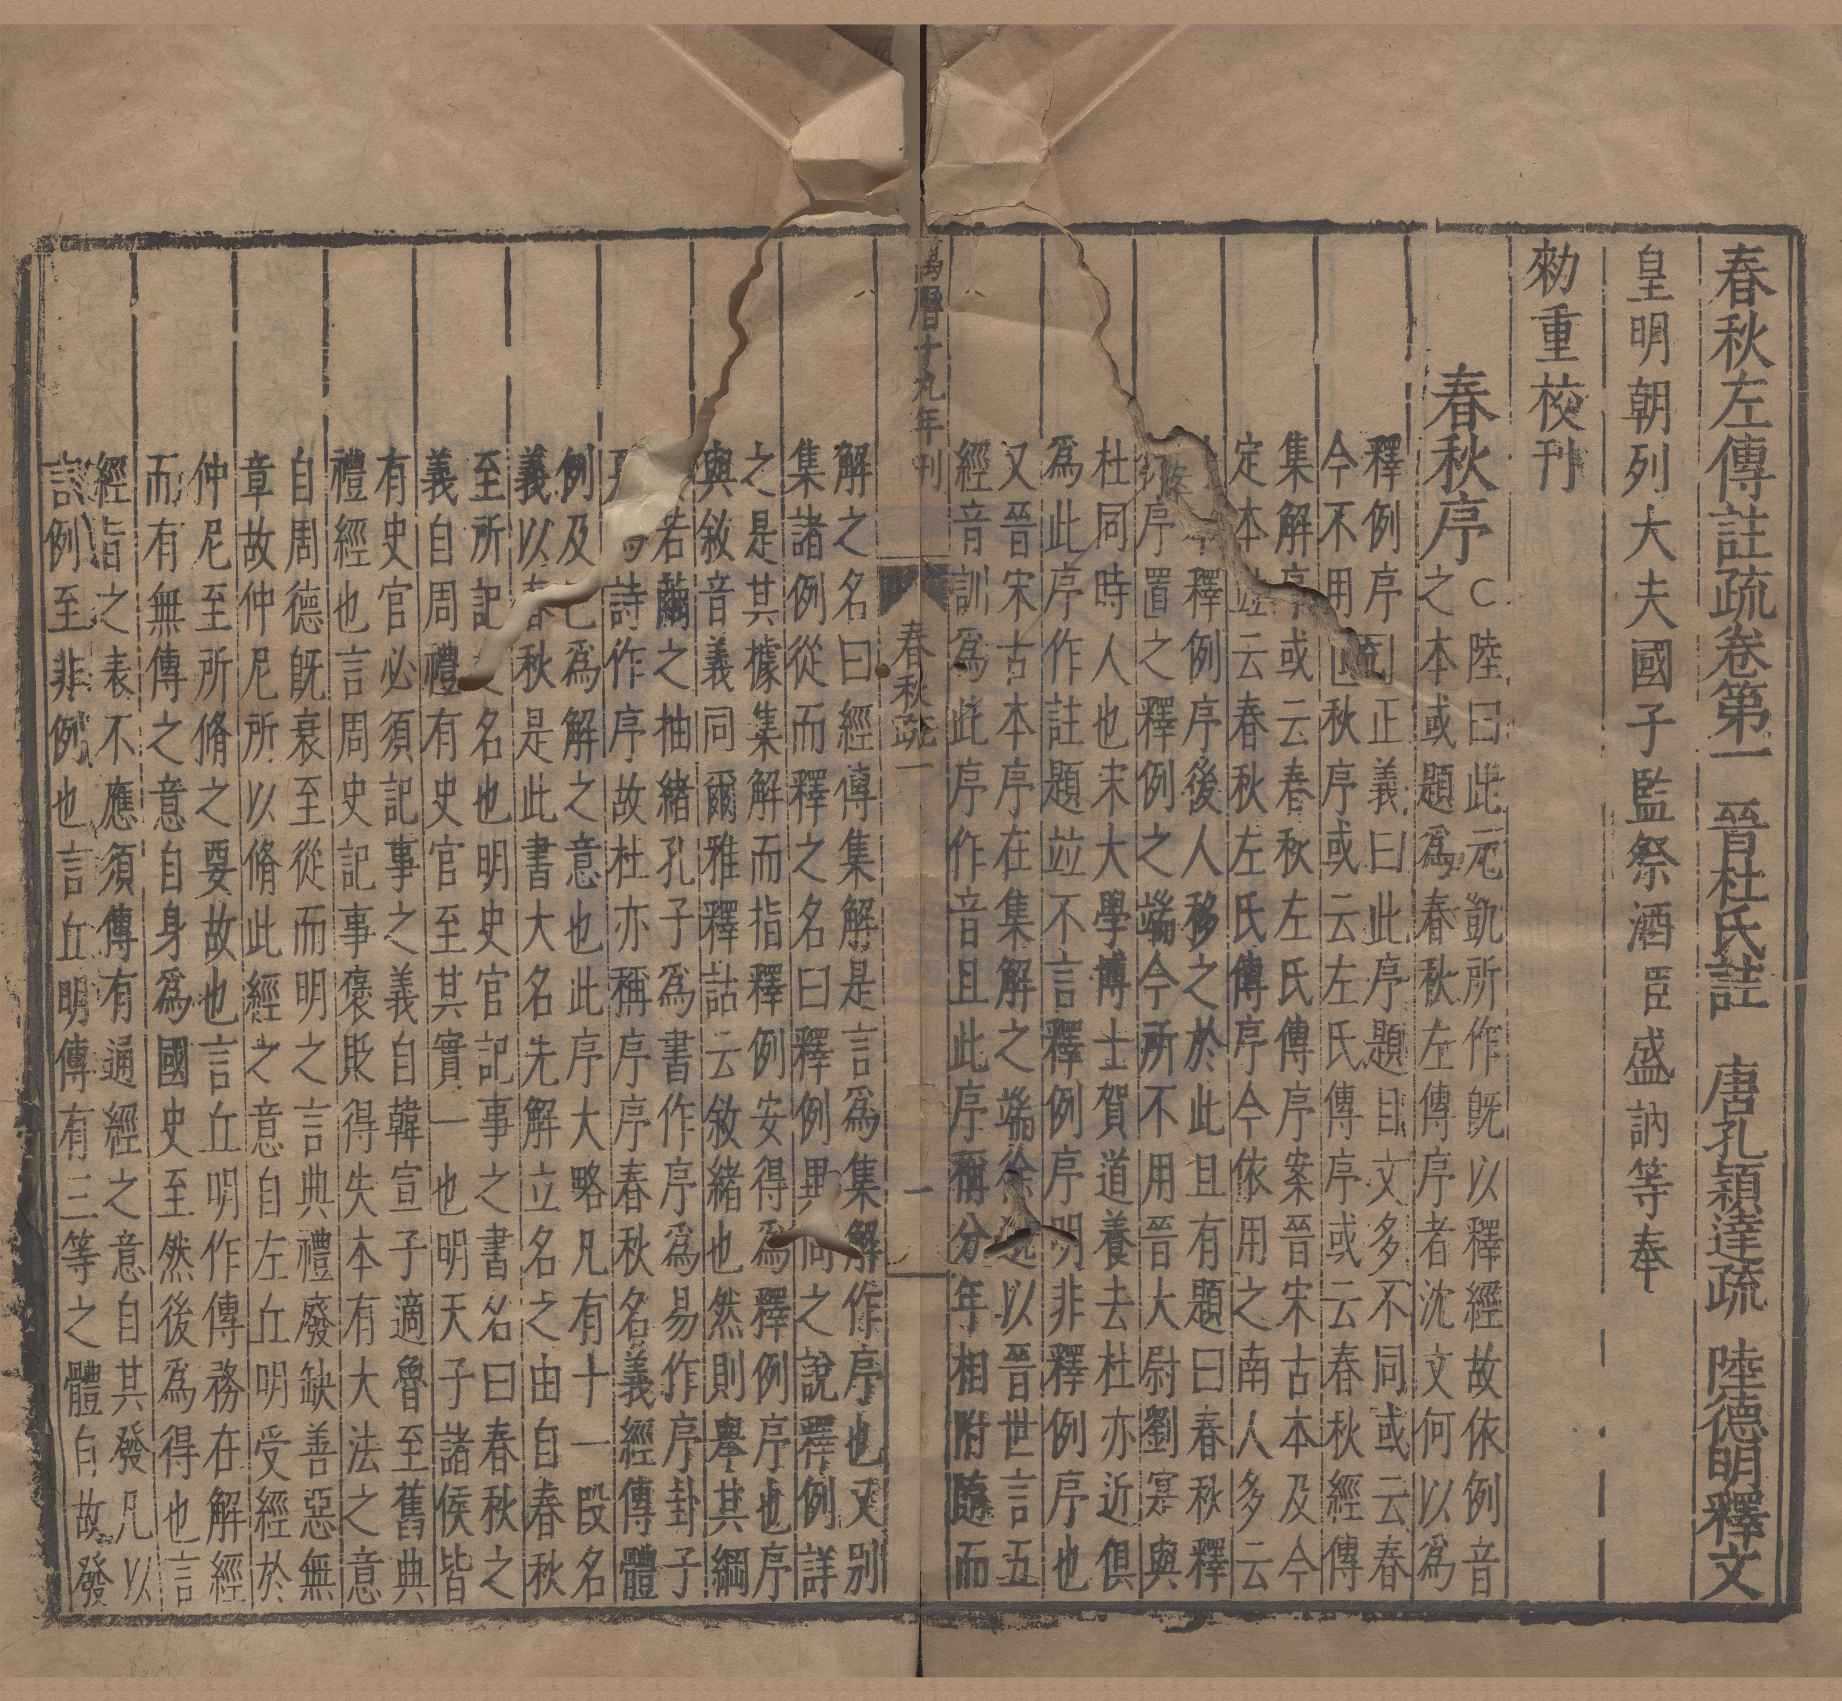 春秋左傳註疏卷第一 晉杜氏註 唐孔穎達疏 陸德明釋文
皇明朝列大夫國子監祭酒臣盛訥等奉
勑重校刊
春秋序
○陸曰此元凱所作旣以釋經故依例音
之本或題爲春秋左傳序者沈文何以爲
釋例序疏正義曰此序題目文多不同或云春
今不用秋序或云左氏傳序或云春秋經傳
集解序或云春秋左氏傳序案晉宋古本及今
定本並云春秋左氏傳序今依用之南人多云
釋例序後人移之於此且有題曰春秋釋
序置之釋例之端今所不用晉大尉劉寔與
杜同時人也宋大學博士賀道養去杜亦近俱
爲此序作註題並不言釋例序明非釋例序也
又晉宋古本序在集解之端徐邈以晉世言五
經音訓爲此序作音且此序稱分年相附隨而
萬曆十九年刊
春秋疏一
一
解之名曰經傳集解是言爲集解作序也又別
集諸例從而釋之名曰釋例異同之說釋例詳
之是其據集解而指釋例安得爲釋例序也序
與敘音義同爾雅釋詁云敘緒也然則舉其綱
若繭之抽緒孔子爲書作序爲易作序卦子
詩作序故杜亦稱序序春秋名義經傳體
例及己爲解之意也此序大略凡有十一段名
義以春秋是此書大名先解立名之由自春秋
至所記之名也明史官記事之書名曰春秋之
義自周禮有史官至其實一也明天子諸侯皆
有史官必須記事之義自韓宣子適魯至舊典
禮經也言周史記事褒貶得失本有大法之意
自周德旣衰至從而明之言典禮廢缺善惡無
章故仲尼所以脩此經之意自左丘明受經於
仲尼至所脩之要故也言丘明作傳務在解經
而有無傳之意自身爲國史至然後爲得也言
經旨之表不應須傳有通經之意自其發凡以
言例至非例也言丘明傳有三等之體自故發